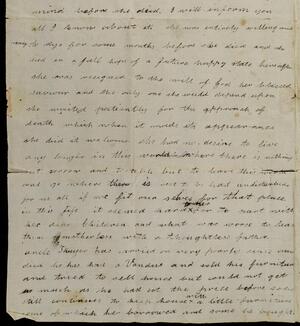 mind before she died. I will inform you
all I know about it she was entirely willing and
to die for some months before she died and she
died in a full hope of a future happy state hereafter
she was resigned to the will of God her blessed
saviour and the only one she would depend upon
she waited patiently for the approach of
death which when it made its appearance
she did it welcome she had no desire to live
any longer in this world where there is nothing
but sorrow and trouble but to have this
and go where there is rest to had
for us all if we fit our selves for that place
in this life it seemed hard for to part with
her dear Children and what was worse to leave
them motherless with a thoughtless father
uncle has moved on very since
died he has a Vandue and sold his furniture
and tried to sell house but could not get
as much as he had set the price before so he
still continues to keep house with a little furniture
some of which he borrowed and some he bought